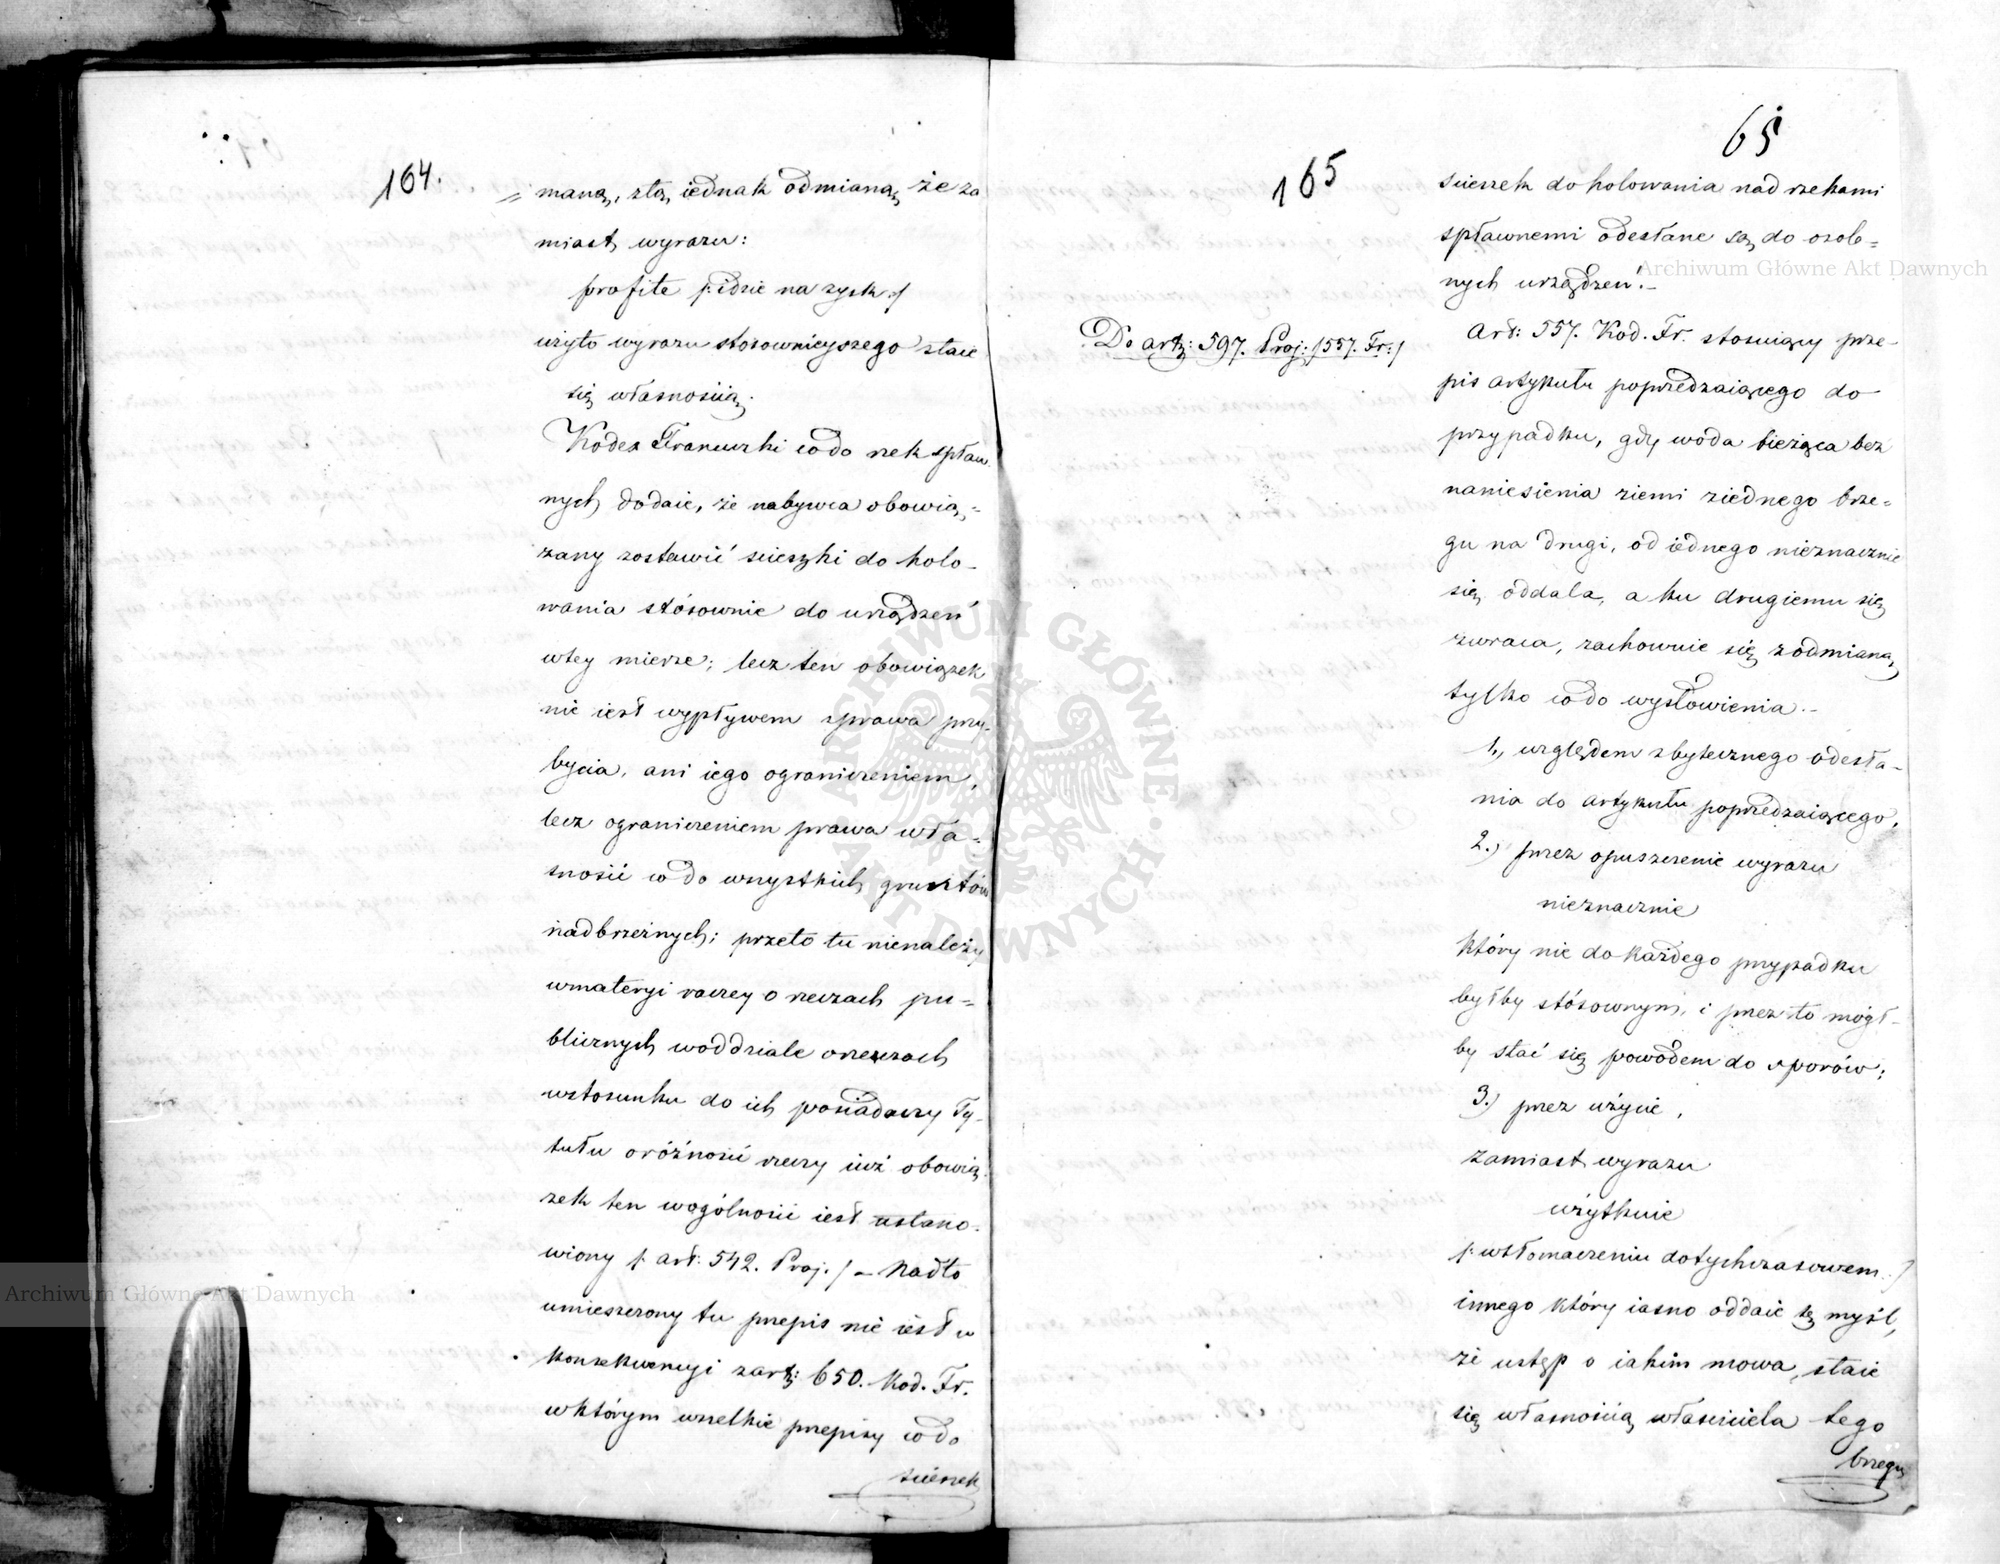 164.
maną, ztą iednak odmianą że za
miast wyrazu:
profite /: idzie na zysk :/
użyto wyrazu stosownieyszego staie
się własnością.
Kodex Francuzki codo rzek spław
nych dodaie, że nabywca obowią=
zany zostawić scieszki do holo-
wania stósownie do urządzeń
wtey mierze; lecz ten obowiązek
nie iest wypływem zprawa przy-
bycia, ani iego ograniczeniem,
lecz ograniczeniem prawa wła-
sności codo wszystkich gruntów
nadbrzeżnych; przeto tu nienależy
wmateryi raczey o rzeczach pu=
blicznych woddziale orzeczach
wstosunku do ich posiadaczy Ty-
tułu oróżności rzeczy iuż obowią-
zek ten wogólności iest ustano-
wiony /: art: 542. Proj. :/ – Nadto
umieszczony tu przepis nie iest w
konsekwencyi zart: 650. Kod. Fr.
wktórym wszelkie przepisy codo
scieszek
65
165
scieszek do holowania nad rzekami
spławnemi odesłane są do osob=
nych urządzeń.–
Do art: 597. Proj: /557. Fr:/
Art: 557. Kod. Fr. stosuiący prze-
pis artykułu poprzedzaiącego do
przypadku, gdy woda bieżąca bez
naniesienia ziemi ziednego brze-
gu na drugi, od iednego nieznacznie
się oddala, a ku drugiemu się
zwraca, zachowuie się zodmianą
tylko codo wysłowienia.–
1., względem zbytecznego odesła-
nia do artykułu poprzedzaiącego,
2.) przez opuszczenie wyrazu
nieznacznie
który nie do każdego przypadku
byłby stósownym, i przez to mógł-
by stać się powodem do sporów;
3.) przez użycie,
zamiast wyrazu
użytkuie
/: wtłomaczeniu dotychczasowem :/
innego który iasno oddaie tę myśl,
że ustęp o iakim mowa, staie
się własnością właściciela tego
brzegu
Archiwum Główne Akt Dawnych
Archiwum Główne Akt Dawnych
ARCHIWUM GŁÓWNE • AKT DAWNYCH •